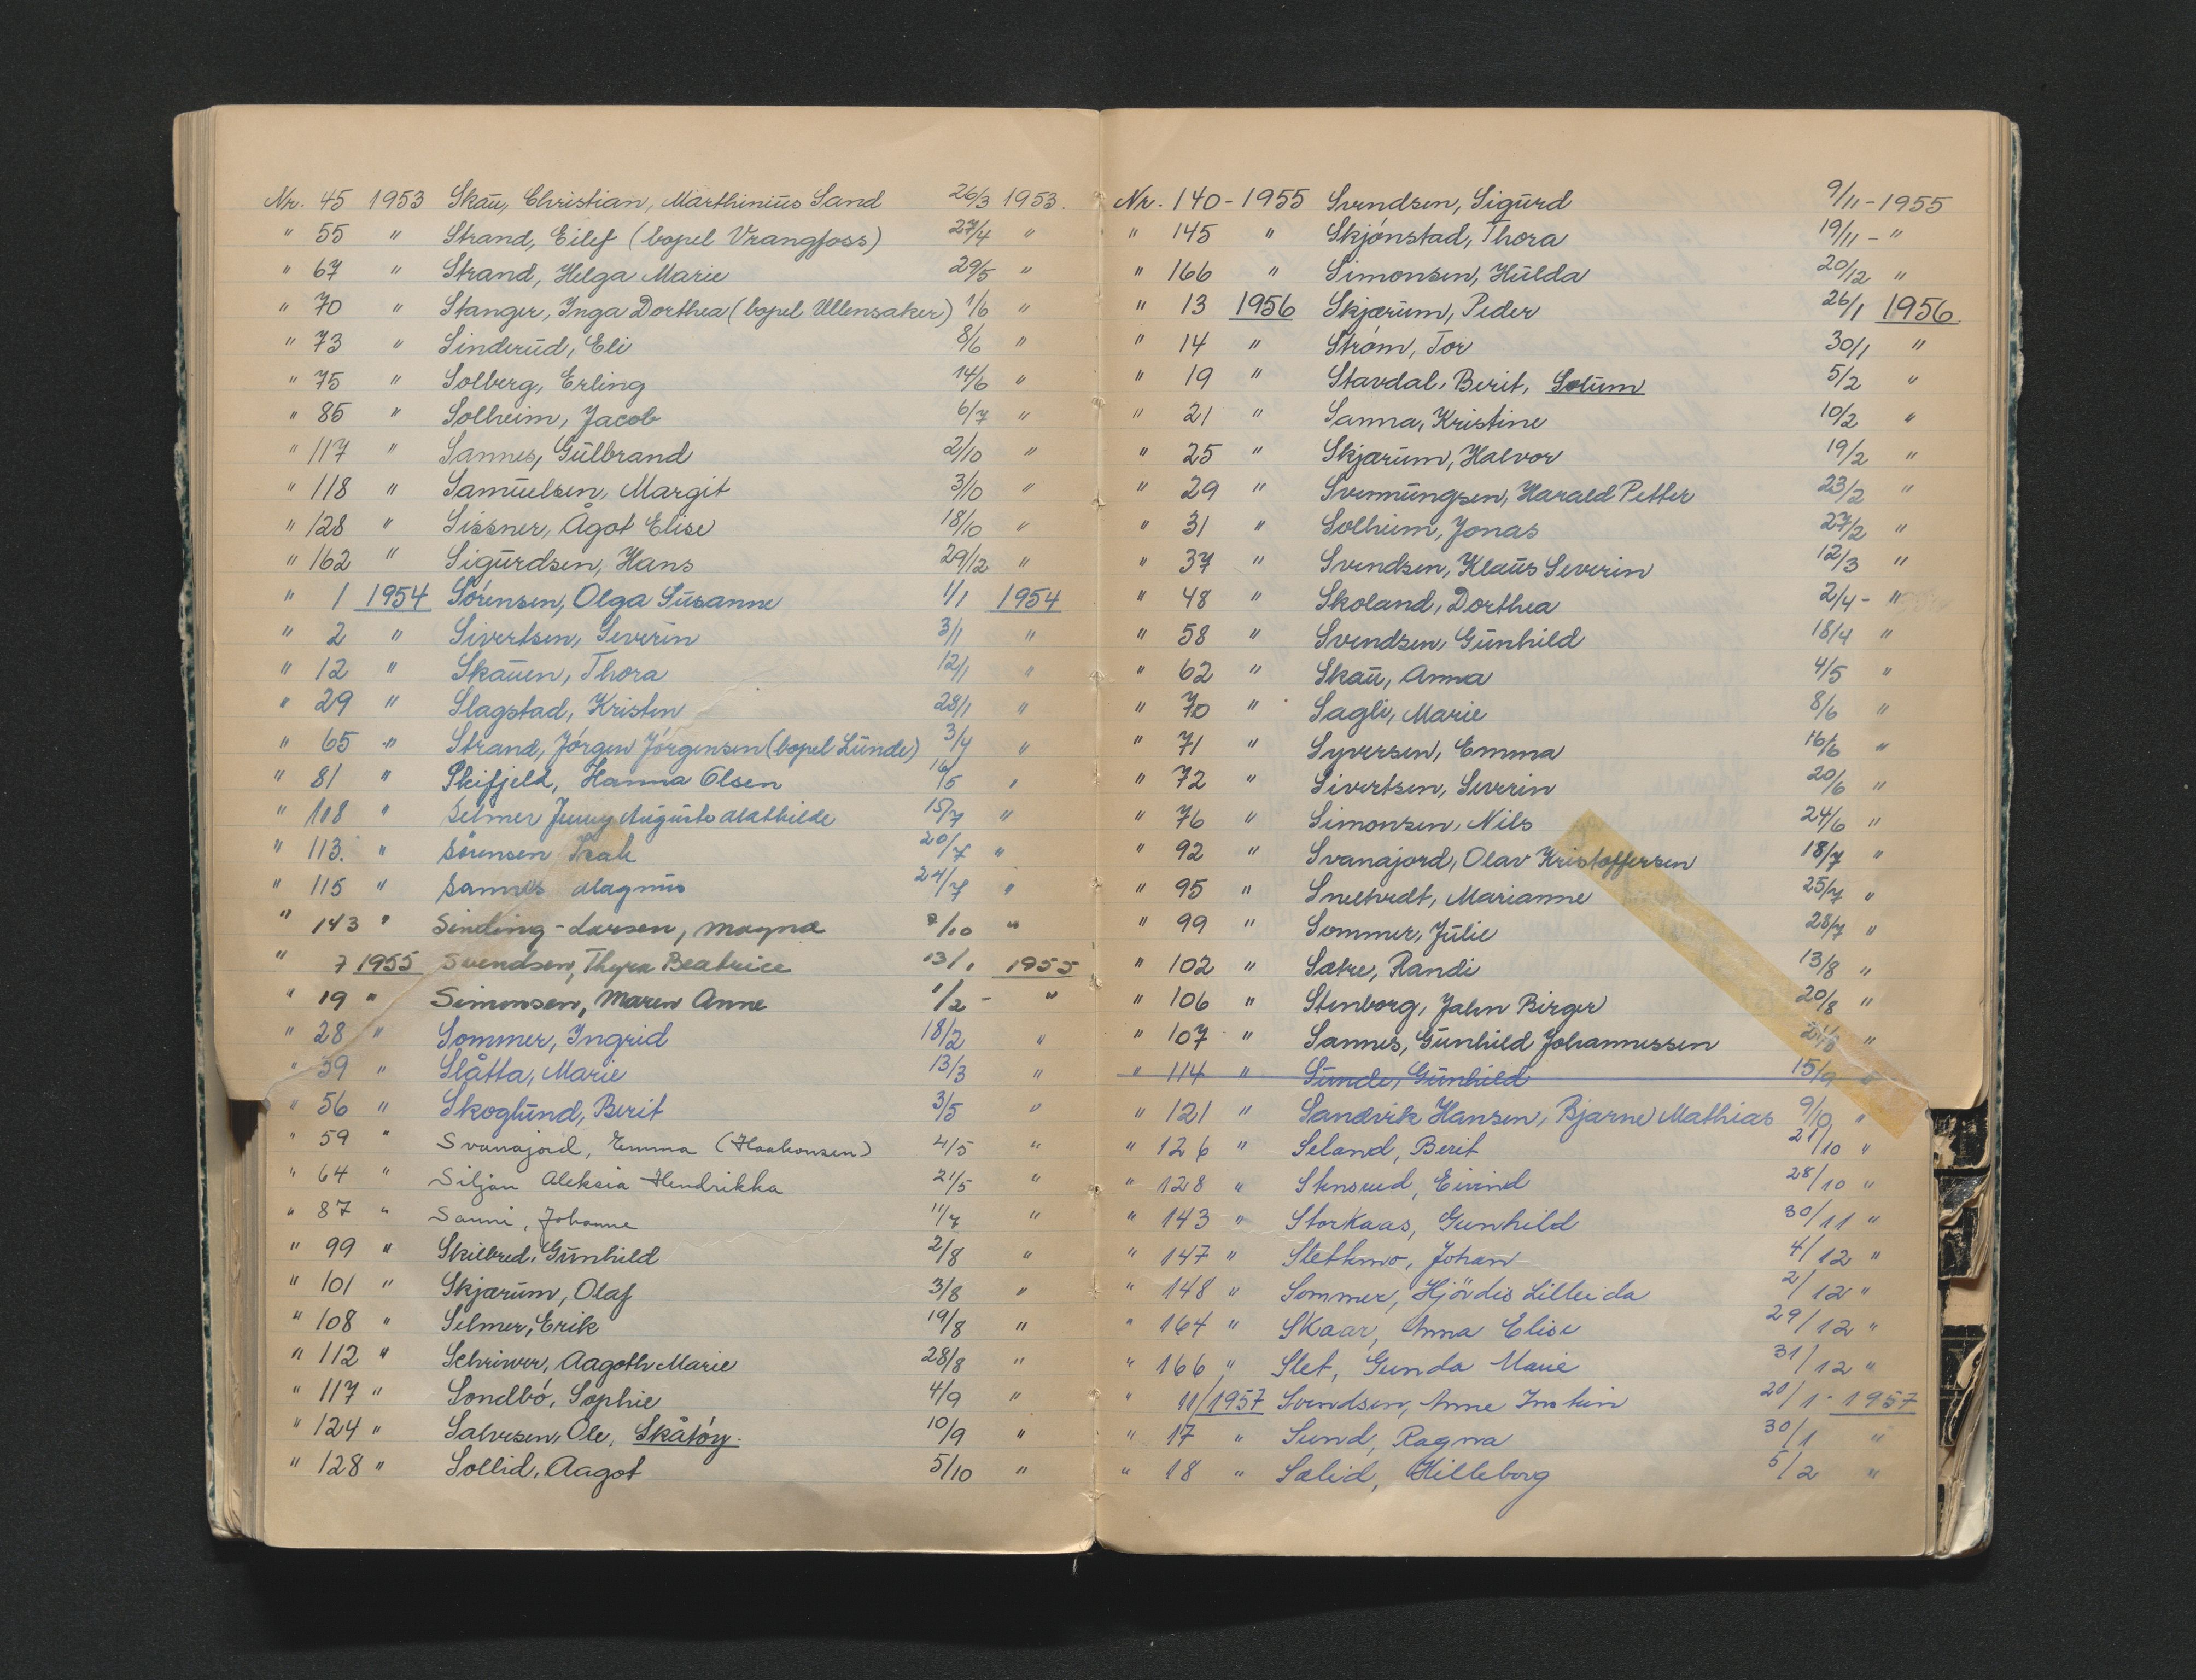 Nr. 45 1953 Skau, Christian, Marthinius Sand 26/3 1953.
" 55 " Strand, Eilef (bopel Vrangfoss) 27/4 "
" 67 " Strand, Helga Marie 29/5 "
" 70 " Stanger, Inga Dorthea (bopel Ullensaker) 1/6 "
" 73 " Sinderud, Eli 8/6 "
" 75 " Solberg, Erling 14/6 "
" 85 " Solheim, Jacob 6/7 "
" 117 " Sannes, Gulbrand 2/10 "
" 118 " Samuelsen, Margit 3/10 "
" 128 " Sissner, Ågot Elise 18/10 "
" 162 " Sigurdsen, Hans 29/12 "
" 1 1954 Sørensen, Olga Susanne 1/1 1954
" 2 " Sivertsen, Severin 3/1 "
" 12 " Skauen, Thora 12/1 "
" 29 " Slagstad, Kristen 28/1 "
" 65 " Strand, Jørgen Jørgensen (bopel Lunde) 3/4 "
" 81 " Skifjeld, Hanna Olsen 16/5 "
" 108 " Selmer Jenny Augusta Mathilde 15/7 "
" 113. " Sörensen Isak 20/7 "
" 115 " Sannes Magnus 24/7 "
" 143 " Sinding-Larsen, Magna /10 "
" 7 1955 Svendsen, Thyra Beatrice 13/1 1955
" 19 " Simonsen, Maren Anne 1/2 - "
" 28 " Sommer, Ingrid 18/2 "
" 39 " Slåtta, Marie 13/3 "
" 56 " Skoglund, Berit 3/5 "
" 59 " Svanajord, Emma (Haakonsen) 4/5 "
" 64 " Siljan Aleksia Hendrikka 21/5 "
" 87 " Sanni, Johanne 11/7 "
" 99 " Skilbred, Gunhild 2/8 "
" 101 " Skjærum, Olaf 3/8 "
" 108 " Selmer, Erik 19/8 "
" 112 " Schriwer, Aagoth Marie 28/8 "
" 117 " Sondbø, Sophie 4/9 "
" 124 " Salvesen, Ole, Skåtøy. 10/9 "
" 128 " Sollid, Aagot 5/10 "
Nr. 140 - 1955 Svendsen, Sigurd 9/11 - 1955
" 145 " Skjønstad, Thora 19/11 - "
" 166 " Simonsen, Hulda 20/12 "
" 13 1956 Skjærum, Peder 26/1 1956.
" 14 " Strøm, Tor 30/1 "
" 19 " Stavdal, Berit, Solum 5/2 "
" 21 " Sanna, Kristine 10/2 "
" 25 " Skjærum, Halvor 19/2 "
" 29 " Svennungsen, Harald Petter 23/2 "
" 31 " Solheim, Jonas 27/2 "
" 37 " Svendsen, Klaus Severin 12/3 "
" 48 " Skoland, Dorthea 2/4 - "
" 58 " Svendsen, Gunhild 18/4 "
" 62 " Skau, Anna 4/5 "
" 70 " Sagli, Marie 8/6 "
" 71 " Syversen, Emma 16/6 "
" 72 " Sivertsen, Severin 20/6 "
" 76 " Simonsen, Nils 24/6 "
" 92 " Svanajord, Olav Kristoffersen 18/7 "
" 95 " Sneltvedt, Marianne 25/7 "
" 99 " Sommer, Julie 28/7 "
" 102 " Sætre, Randi 13/8 "
" 106 " Stenborg, Jahn Birger 20/8 "
" 107 " Sannes, Gunhild Johannessen 21/8 "
" 114 " Sunde, Gunhild 15/9 "
" 121 " Sandvik Hansen, Bjarne Mathias 9/10 "
" 126 " Seland, Berit 21/10 "
" 128 " Stensrud, Eivind 28/10 "
" 143 " Storkaas, Gunhild 30/11 "
" 147 " Slettemo, Johan 4/12 "
" 148 " Sommer, Hjördis Lilleida 2/12 "
" 164 " Skaar, Anna Elise 29/12 "
" 166 " Slet, Gunda Marie 31/12 "
" 11/1957 Svendsen, Anne 20/1 - 1957
" 17 " Sund, Ragna 30/1 "
" 18 " Sælid, Hilleborg 5/2 "